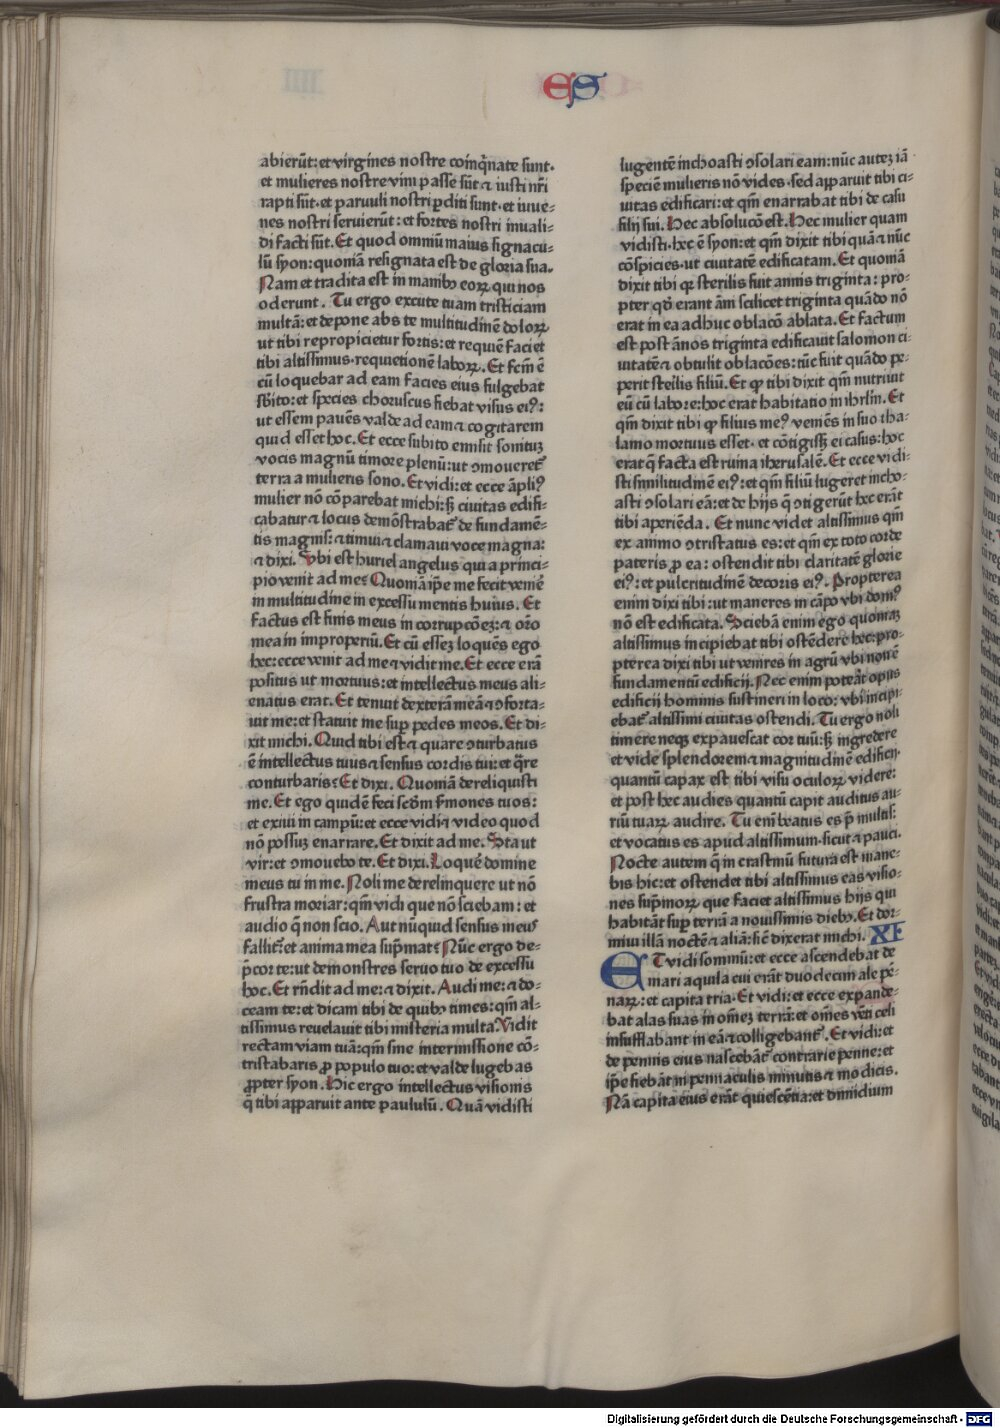 ES
abierūt: et virgines nostre coinq̄nate sunt.
et mulieres nostre vim passe sūt ⁊ iusti nr̄i
rapti sūt. et paruuli nostri ꝑditi sunt. et iuue-
nes nostri seruierūt: et fortes nostri inuali-
di facti sūt. Et quod omniū maius signacu-
lū syon: quoniā resignata est de gloria sua.
Nam et tradita est in manibꝰ eoꝝ qui nos
oderunt. Tu ergo excute tuam tristiciam
multā: et depone abs te multitudinē doloꝝ
ut tibi repropicietur fortis: et requiē faciet
tibi altissimus. requietionē laboꝝ. Et fcm̄ ē
cū loquebar ad eam facies eius fulgebat
sb̄ito: et species choruscus fiebat visus eiꝰ:
ut essem pauēs valde ad eam ⁊ cogitarem
quid esset hoc. Et ecce subito emisit sonituꝫ
vocis magnū timore plenū: ut ↄmoueret᷑
terra a mulieris sono. Et vidi: et ecce āpliꝰ
mulier nō cōparebat michi: sꝫ ciuitas edifi-
cabatur ⁊ locus demōstrabat᷑ de fundamē-
tis magnis: ⁊ timui ⁊ clamaui voce magna:
⁊ dixi. Vbi est huriel angelus qui a princi-
pio venit ad me? Quoniā ip̄e me fecit venire
in multitudine in excessu mentis huius. Et
factus est finis meus in corrupcōeꝫ: ⁊ or̄o
mea in improperiū. Et cū esseꝫ loquēs ego
hec: ecce venit ad me ⁊ vidit me. Et ecce erā
positus ut mortuus: et intellectus meus ali-
enatus erat. Et tenuit dexterā meā ⁊ ↄforta-
uit me: et statuit me suꝑ pedes meos. Et di-
xit michi. Quid tibi est ⁊ quare ↄturbatus
ē intellectus tuus ⁊ sensus cordis tui: et q̄re
conturbaris? Et dixi. Quoniā dereliquisti
me. Et ego quidē feci scdm̄ s̄mones tuos:
et exiui in campū: et ecce vidi ⁊ video quod
nō possuꝫ enarrare. Et dixit ad me. Sta ut
vir: et ↄmouebo te. Et dixi. Loquē domine
meus tu in me. Noli me derelinquere ut nō
frustra moriar: qm̄ vidi que nō sciebam: et
audio q̄ non scio. Aut nūquid sensus meus
fallit᷑ et anima mea sūpmat? Nūc ergo de-
p̄cor te: ut demonstres seruo tuo de excessu
hoc. Et rn̄dit ad me: ⁊ dixit. Audi me: ⁊ do-
ceam te: et dicam tibi de quibꝰ times: qm̄ al-
tissimus reuelauit tibi misteria multa. Vidit
rectam viam tuā: qm̄ sine intermissione cō-
tristabaris ꝓ populo tuo: et valde lugebas
ꝓpter syon. Hic ergo intellectus visionis
q̄ tibi apparuit ante paululū. Quā vidisti
lugentē inchoasti ↄsolari eam: nūc auteꝫ iā
speciē mulieris nō vides. sed apparuit tibi ci-
uitas edificari: et qm̄ enarrabat tibi de casu
filij sui. Hec absolucō est. Hec mulier quam
vidisti. hec ē syon: et qm̄ dixit tibi quā ⁊ nūc
cōspicies. ut ciuitatē edificatam. Et quoniā
dixit tibi qꝛ sterilis fuit annis triginta: pro-
pter qd̄ erant āni scilicet triginta quādo nō
erat in ea adhuc oblacō ablata. Et factum
est post ānos triginta edificauit salomon ci-
uitatē ⁊ obtulit oblacōes: tūc fuit quādo pe-
perit sterilis filiū. Et ꝙ tibi dixit qm̄ nutriuit
eū cū labore: hoc erat habitatio in ihrlm̄. Et
qm̄ dixit tibi ꝙ filius meꝰ veniēs in suo tha-
lamo mortuus esset. et cōtigisꝫ ei casus: hoc
erat q̄ facta est ruina iherusalē. Et ecce vidi-
sti similitudinē eiꝰ: et qm̄ filiū lugeret incho-
asti ↄsolari eā: et de hijs q̄ ↄtigerūt hec erāt
tibi aperiēda. Et nunc videt altissimus qm̄
ex animo ↄtristatus es: et qm̄ ex toto corde
pateris ꝓ ea: ostendit tibi claritatē glorie
eiꝰ: et pulcritudinē decoris eiꝰ. Propterea
enim dixi tibi: ut maneres in cāpo vbi domꝰ
nō est edificata. Sciebā enim ego quoniaꝫ
altissimus incipiebat tibi ostēdere hec: pro-
pterea dixi tibi ut venires in agrū vbi non ē
fundamentū edificij. Nec enim poterāt opus
edificij hominis sustineri in loco: vbi incipi-
ebat᷑ altissimi ciuitas ostendi. Tu ergo noli
timere neqꝫ expauescat cor tuū: sꝫ ingredere
et vide splendorem ⁊ magnitudinē edificij.
quantū capax est tibi visu oculoꝝ videre:
et post hec audies quantū capit auditus au-
riū tuaꝝ audire. Tu enī beatus es p̄ multis:
et vocatus es apud altissimum. sicut ⁊ pauci.
Nocte autem q̄ in crastinū futura est mane-
bis hic: et ostendet tibi altissimus eas visio-
nes sup̄moꝝ que faciet altissimus hijs qui
habitāt suꝑ terrā a nouissimis diebꝰ. Et dor-
miui illā noctē ⁊ aliā: sic̄ dixerat michi. XI
ET vidi somniū: et ecce ascendebat de
mari aquila cui erāt duodecim ale pē-
naꝝ: et capita tria. Et vidi: et ecce expande-
bat alas suas in om̄eꝫ terrā: et om̄es vēti celi
insufflabant in eā ⁊ colligebant᷑. Et vidi: et
de pennis eius nascebāt᷑ contrarie penne: et
ip̄e fiebāt in pennaculis minutis ⁊ modicis.
Nā capita eius erāt quiescētia: et dimidium
Digitalisierung gefördert durch die Deutsche Forschungsgemeinschaft - DFG